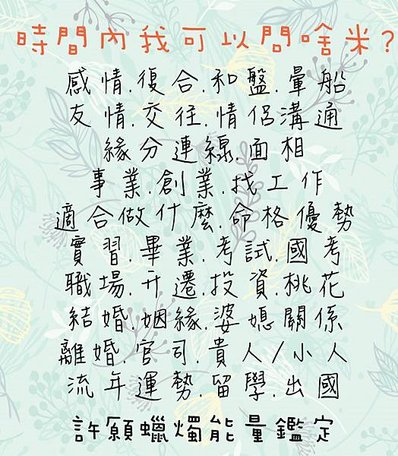 時間內我可以問啥米?
感情.復合.和盤.暈船
友情.交往.情侶溝通
緣分連線.面相
事業.創業.找工作
適合做什麼.命格優勢
實習.畢業.考試.國考
職場.升遷.投資.桃花
結婚.姻緣.婆媳關係
離婚.官司.貴人/小人
流年運勢.留學.出國
許願蠟燭能量鑑定